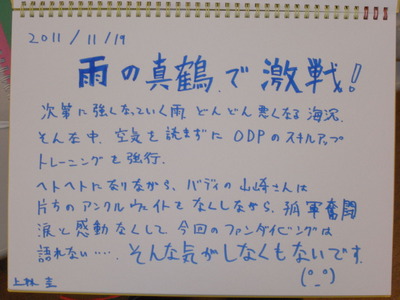 2011/11/19
雨の真鶴で激戦!
次第に強くなっていく雨、どんどん悪くなる海況。
そんな中、空気を読まずにODPのスキルアップ
トレーニングを強行。
ヘトヘトになりながら、バディの山崎さんは
片ちのアンクルウェイトをなくしながら、孤軍奮闘
涙と感動なくして、今回のファンダイビングは
語れない……、そんな気がしなくもないです。
(°_°)
上林 圭